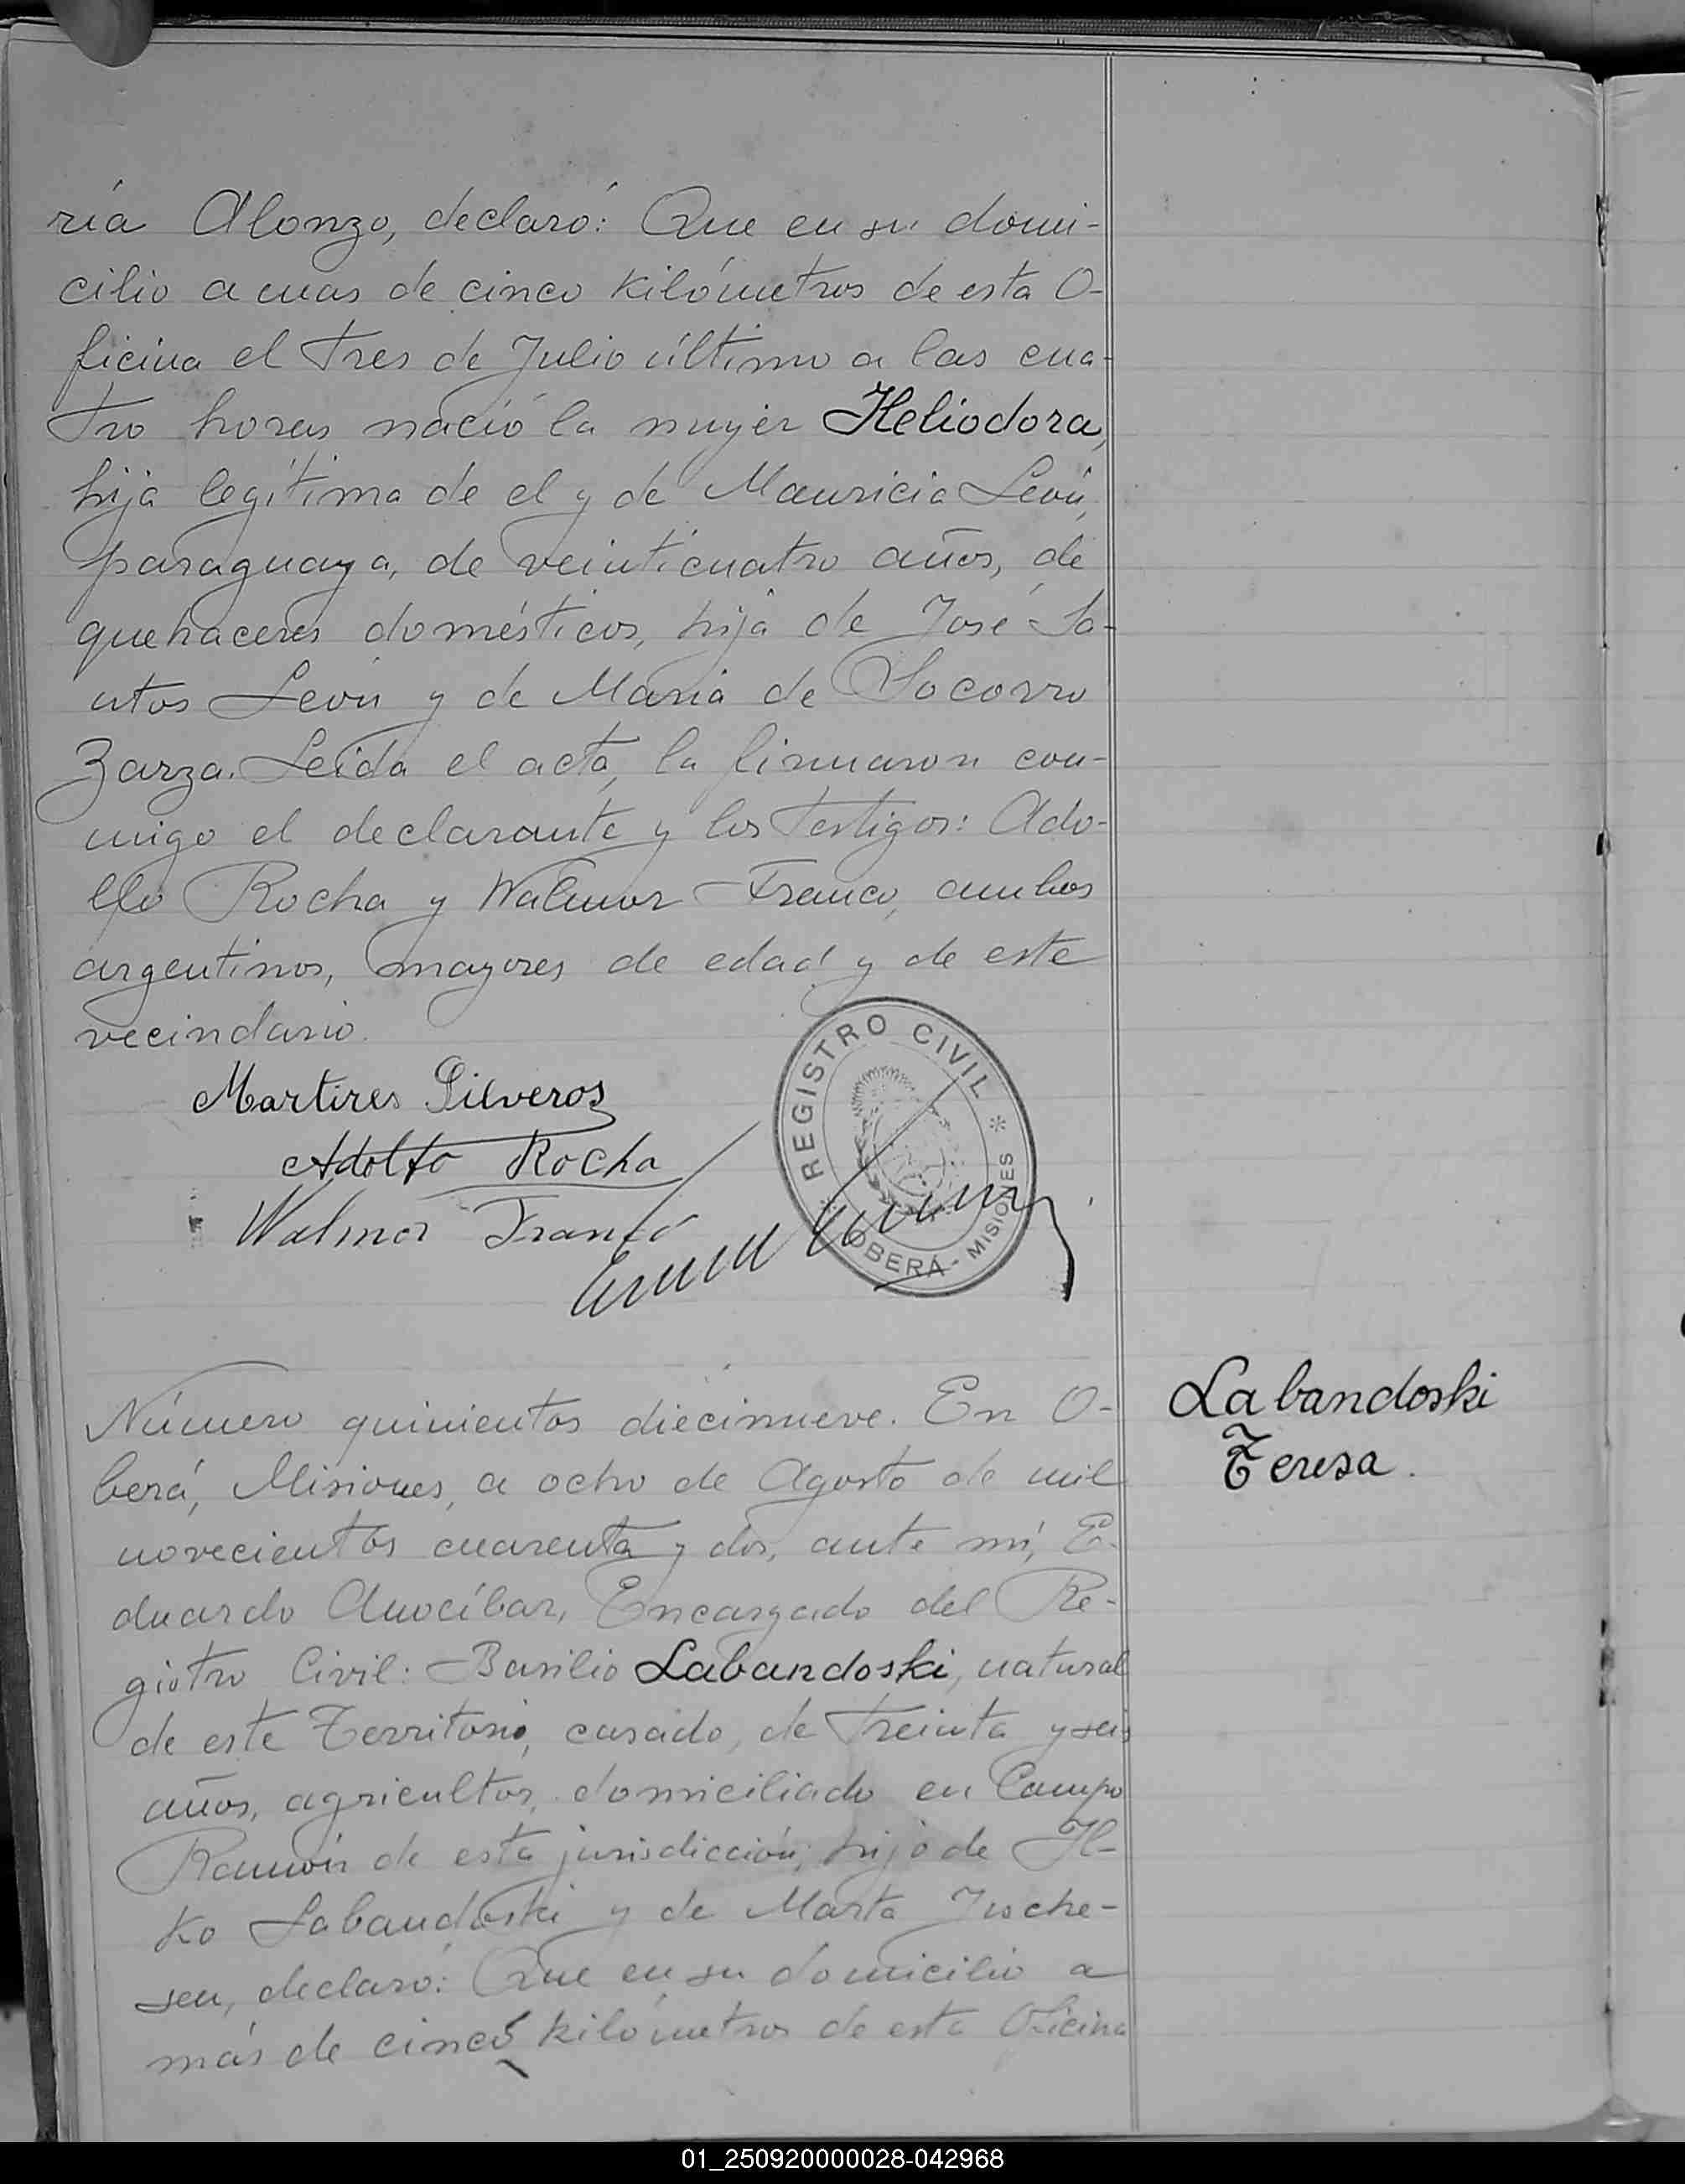 ría Alonzo, declaró: Que en su domi-
cilio a mas de cinco kilómetros de esta O-
ficina el tres de Julio último a las cua-
tro horas nació la mujer Heliodora,
hija legítima de el y de Mauricia León,
paraguaya, de veinticuatro años, de
quehaceres domésticos, hija de José Sa-
ntos León y de María de Socorro
Zarza. Leída el acta, la firmaron con-
migo el declarante y los testigos: Ado-
lfo Rocha y Walmor Franco, ambos
argentinos, mayores de edad y de este
vecindario.
REGISTRO CIVIL
OBERÁ - MISIONES
Martires Silveros
Adolfo Rocha
Walmor Franco
Número quinientos diecinueve. En O-
berá, Misiones, a ocho de Agosto de mil
novecientos cuarenta y dos, ante mí, E-
duardo Anocíbar, Encargado del Re-
gistro Civil: Basilio Labandoski, natural
de este Territorio, casado, de treinta y seis
años, agricultor, domiciliado en Campo
Ramón de esta jurisdicción, hijo de Il-
ko Labandoski y de Marta
sen, declaró: Que en su domicilio a
más de cinco kilómetros de esta Oficina
Labandoski
Teresa.
01_250920000028-042968